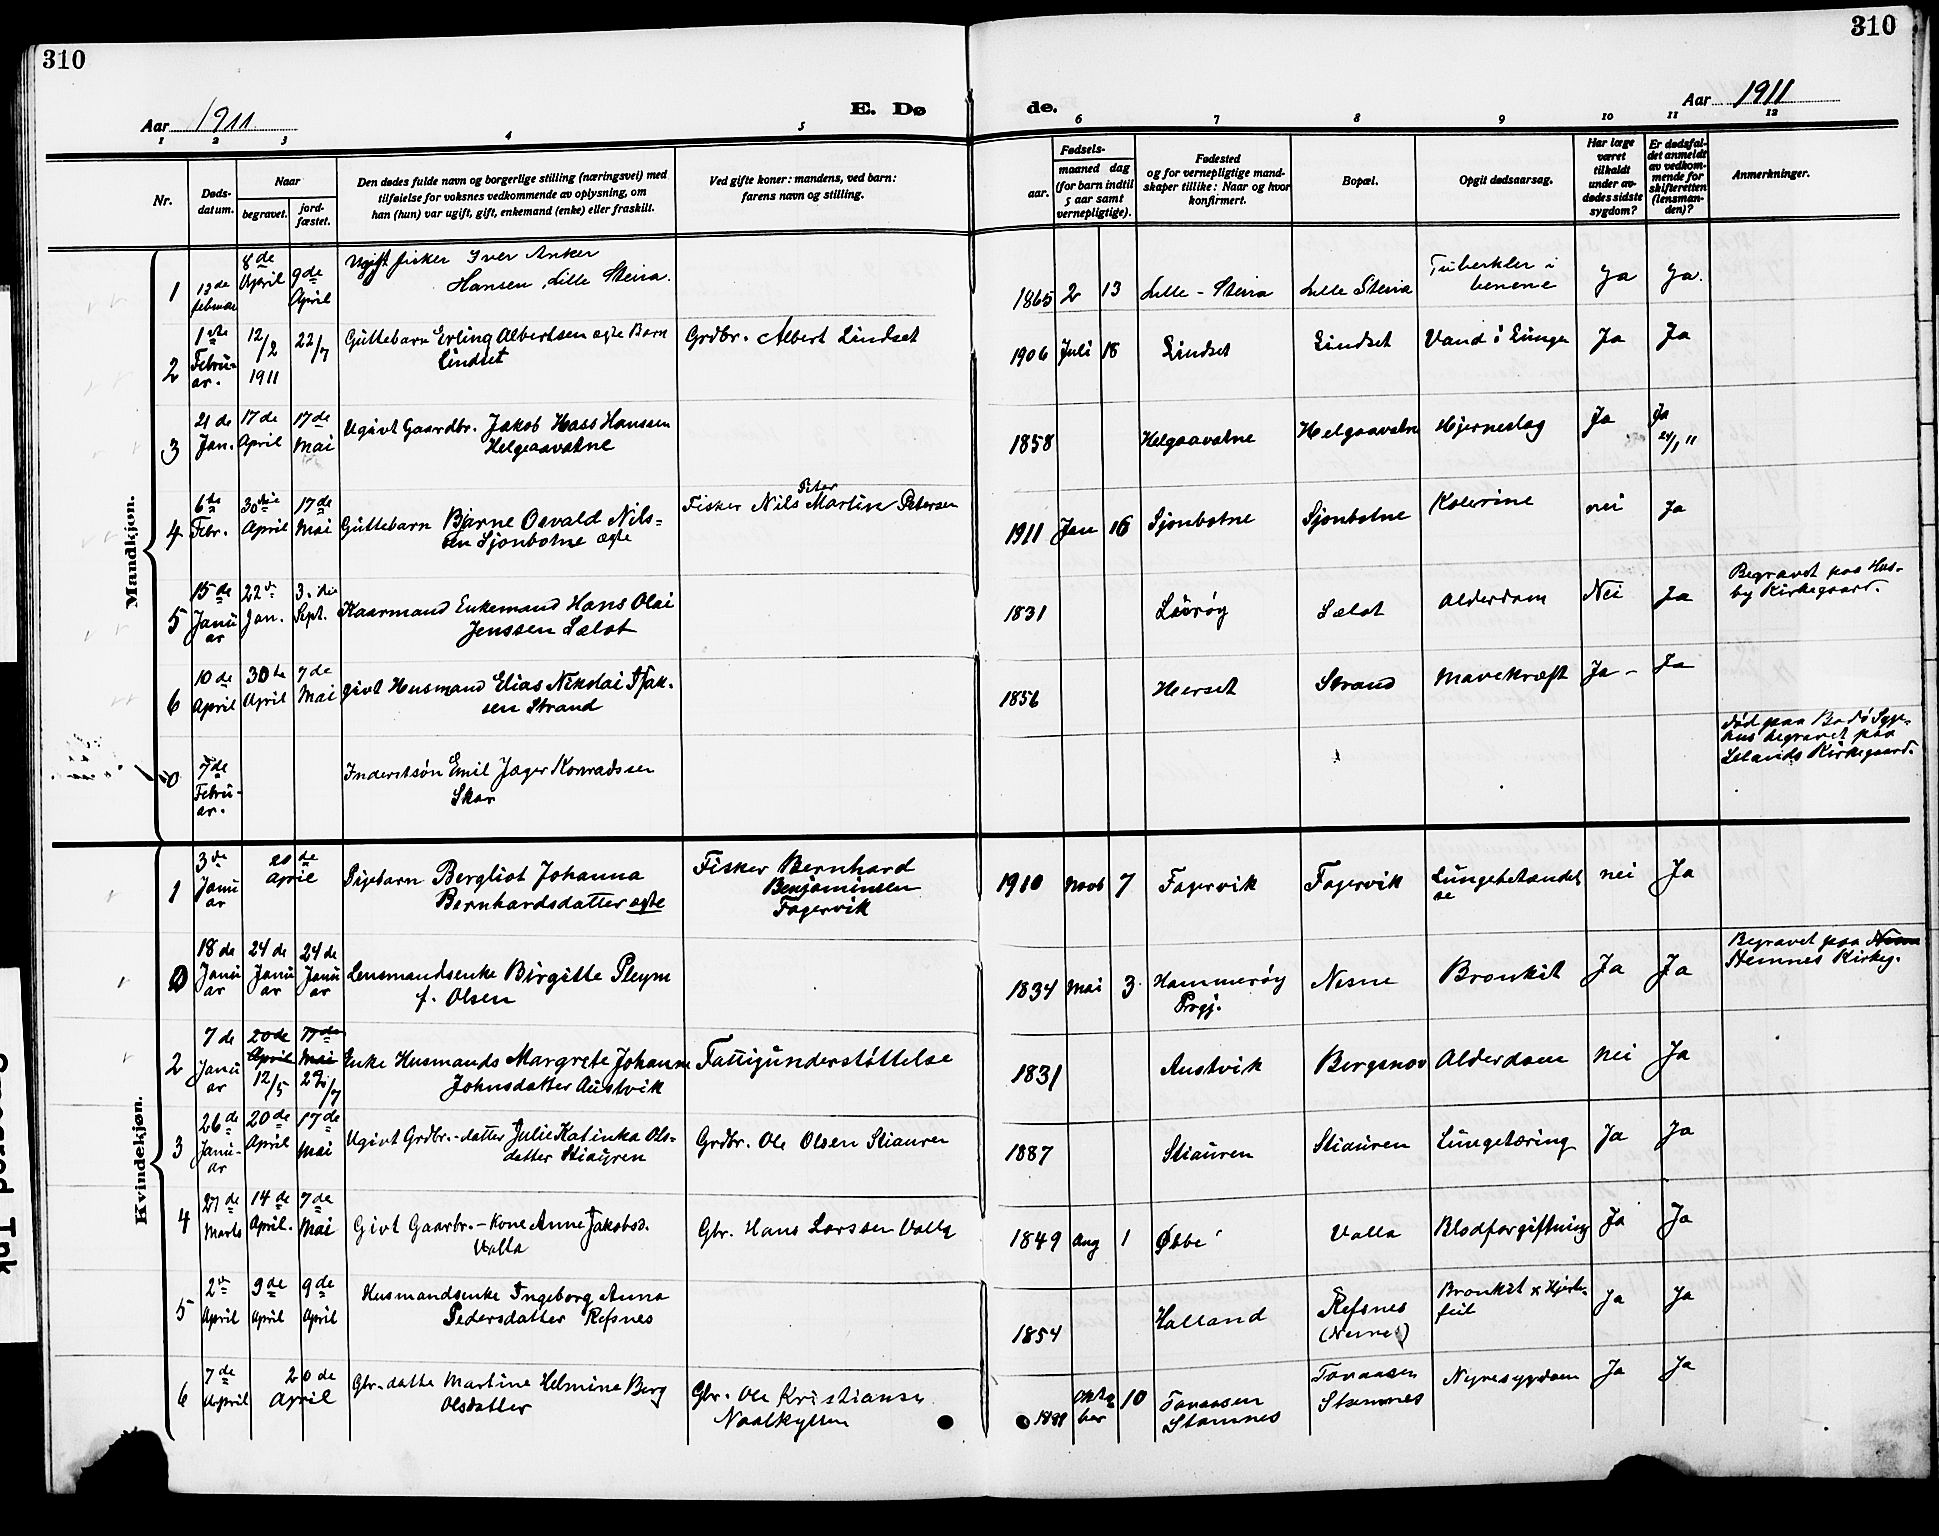 310
310
Aar 1911
E. Dø
de.
Aar 1911
1 2 3 4 5 6 7 8 9 10 11 12
Nr.
Døds-
datum.
Naar
begravet.
jord-
fæstet.
Den dødes fulde navn og borgerlige stilling (næringsvei) med
tilføielse for voksnes vedkommende av oplysning, om
han (hun) var ugift, gift, enkemand (enke) eller fraskilt.
Ved gifte koner: mandens, ved barn:
farens navn og stilling.
Fødsels-
aar.
maaned dag
(for barn indtil
5 aar samt
vernepligtige).
Fødested
og for vernepligtige mand-
skaper tillike: Naar og hvor
konfirmert.
Bopæl.
Opgit dødsaarsag.
Har læge
været
tilkaldt
under av-
dødes sidste
sygdom?
Er dødsfal-
det anmeldt
av vedkom-
mende for
skifteretten
(lensman-
den)?
Anmerkninger.
Mandkjøn.
1
13de
februar
8de
April
9de
April
Ugift fisker Iver Anker
Hansen, Lille Steira.
1865 2 13
Lille-Steira
Lille Steira
Tuberkler i
benene
Ja
Ja.
2
1ste
Febru-
ar.
12/2
1911
22/7
Guttebarn Erling Albertsen egte Barn
Lindset
Grdbr. Albert Lindset
1906 Juli 18
Lindset
Lindset
Vand i Lunge
Ja
Ja
3
21de
Jan.
17de
April
17de
Mai
Ugivt Gaardbr. Jakob Hass Hanssen
Helgaavatne
1858
Helgaavatne
Helgaavatne
Hjerneslag
Ja
Ja
24/1 11
4
6te
Febr.
30
April
17de
Mai
Guttebarn Bjarne Osvald Nils-
sen Sjonbotne egte
Fisker Nils Peter Martin Petersen
1911 Jan 16
Sjonbotne
Sjonbotne
Kolerine
nei
Ja
5
15de
Janu
ar
22de
Jan.
3.die
Sept.
Kaarmand Enkemand Hans Olai
Jenssen Sælot
1831
Lurøy
Sælot
Alderdom
Nei
Ja
Begravet paa Hus-
by Kirkegaard.
6
10de
April
30te
April
7de
Mai
givt Husmand Elias Nikolai Isak-
sen Strand
1856
Herset
Strand
Mavekræft
Ja -
Ja
0
7de
Febru-
ar.
Inderstsøn Emil Jæger Konradsen
Skar
død paa Bodø Syge-
hus begravet paa
Lelands Kirkegaard.
Kvindekjøn.
1
3de
Janu
ar
20de
April
Pigebarn Bergliot Johanna
Bernhardsdatter egte
Fisker Bernhard
Benjaminsen
Fagervik
1910 Novb 7
Fagervik
Fagervik
Lungebetændel
se
nei
Ja
0
18de
Janu
ar
24de
Janu
ar
24de
Janu
ar
Lensmandsenke Birgitte Pleym
f. Olsen
1834 Mai 3
Hammerøy
Prgj.
Nesne
Bronkit
Ja
Ja
Begravet paa Nesna
Hemnes Kirkeg.
2
7de
Janu
ar
20de
April
12/5
17de
Mai
29/7
Enke Husmands Margrete Johanne
Johnsdatter Austvik
Fattigunderstøttelse
1831
Austvik
Bergsnov
Alderdom
nei
Ja
3
26de
Janu-
ar
20de
April
17de
Mai
Ugivt Grdbr.-datter Julie Katinka Ols-
datter Stiauren
Grdbr. Ole Olsen Stiauren
1887
Stiauren
Stiauren
Lungetæring
Ja
Ja
4
27de
Marts
14de
April.
7de
Mai
Givt Gaarbr.-Kone Anne Jakobsd.
Valla
Gbr. Hans Larssen Valla
1849 Aug 1
Øbbe
Valla
Blodforgiftning
Ja
Ja
5
2de
April
9de
April
9de
April
Husmandsenke Ingeborg Anna
Pedersdatter Refsnes
1854
Halland
Refsnes
(Nesne)
Bronkit & Hjerte-
feil
Ja
Ja
6
7de
April
20de
April
Gbr.-datte Martine Helmine Berg
Olsdatter
Gbr. Ole Kristiansen
Naalkyllen
Okto
ber 10
Toraasen
Stamnes
Toraasen
Stamnes
Nyresygdom
Ja
Ja